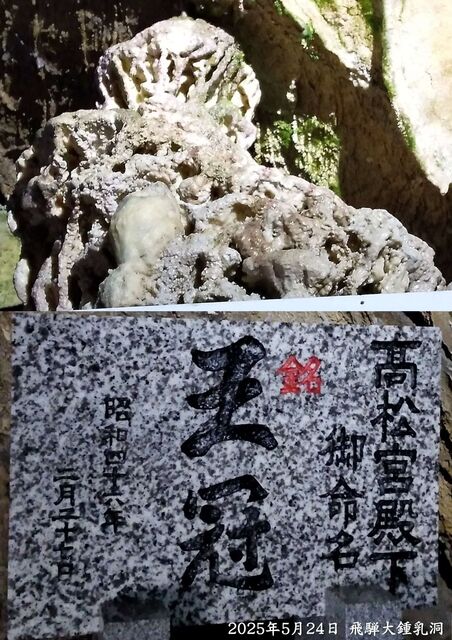 高松宮殿下
御命名
銘
王冠
昭和四十六年
二月二十七日
2025年5月24日 飛騨大鍾乳洞